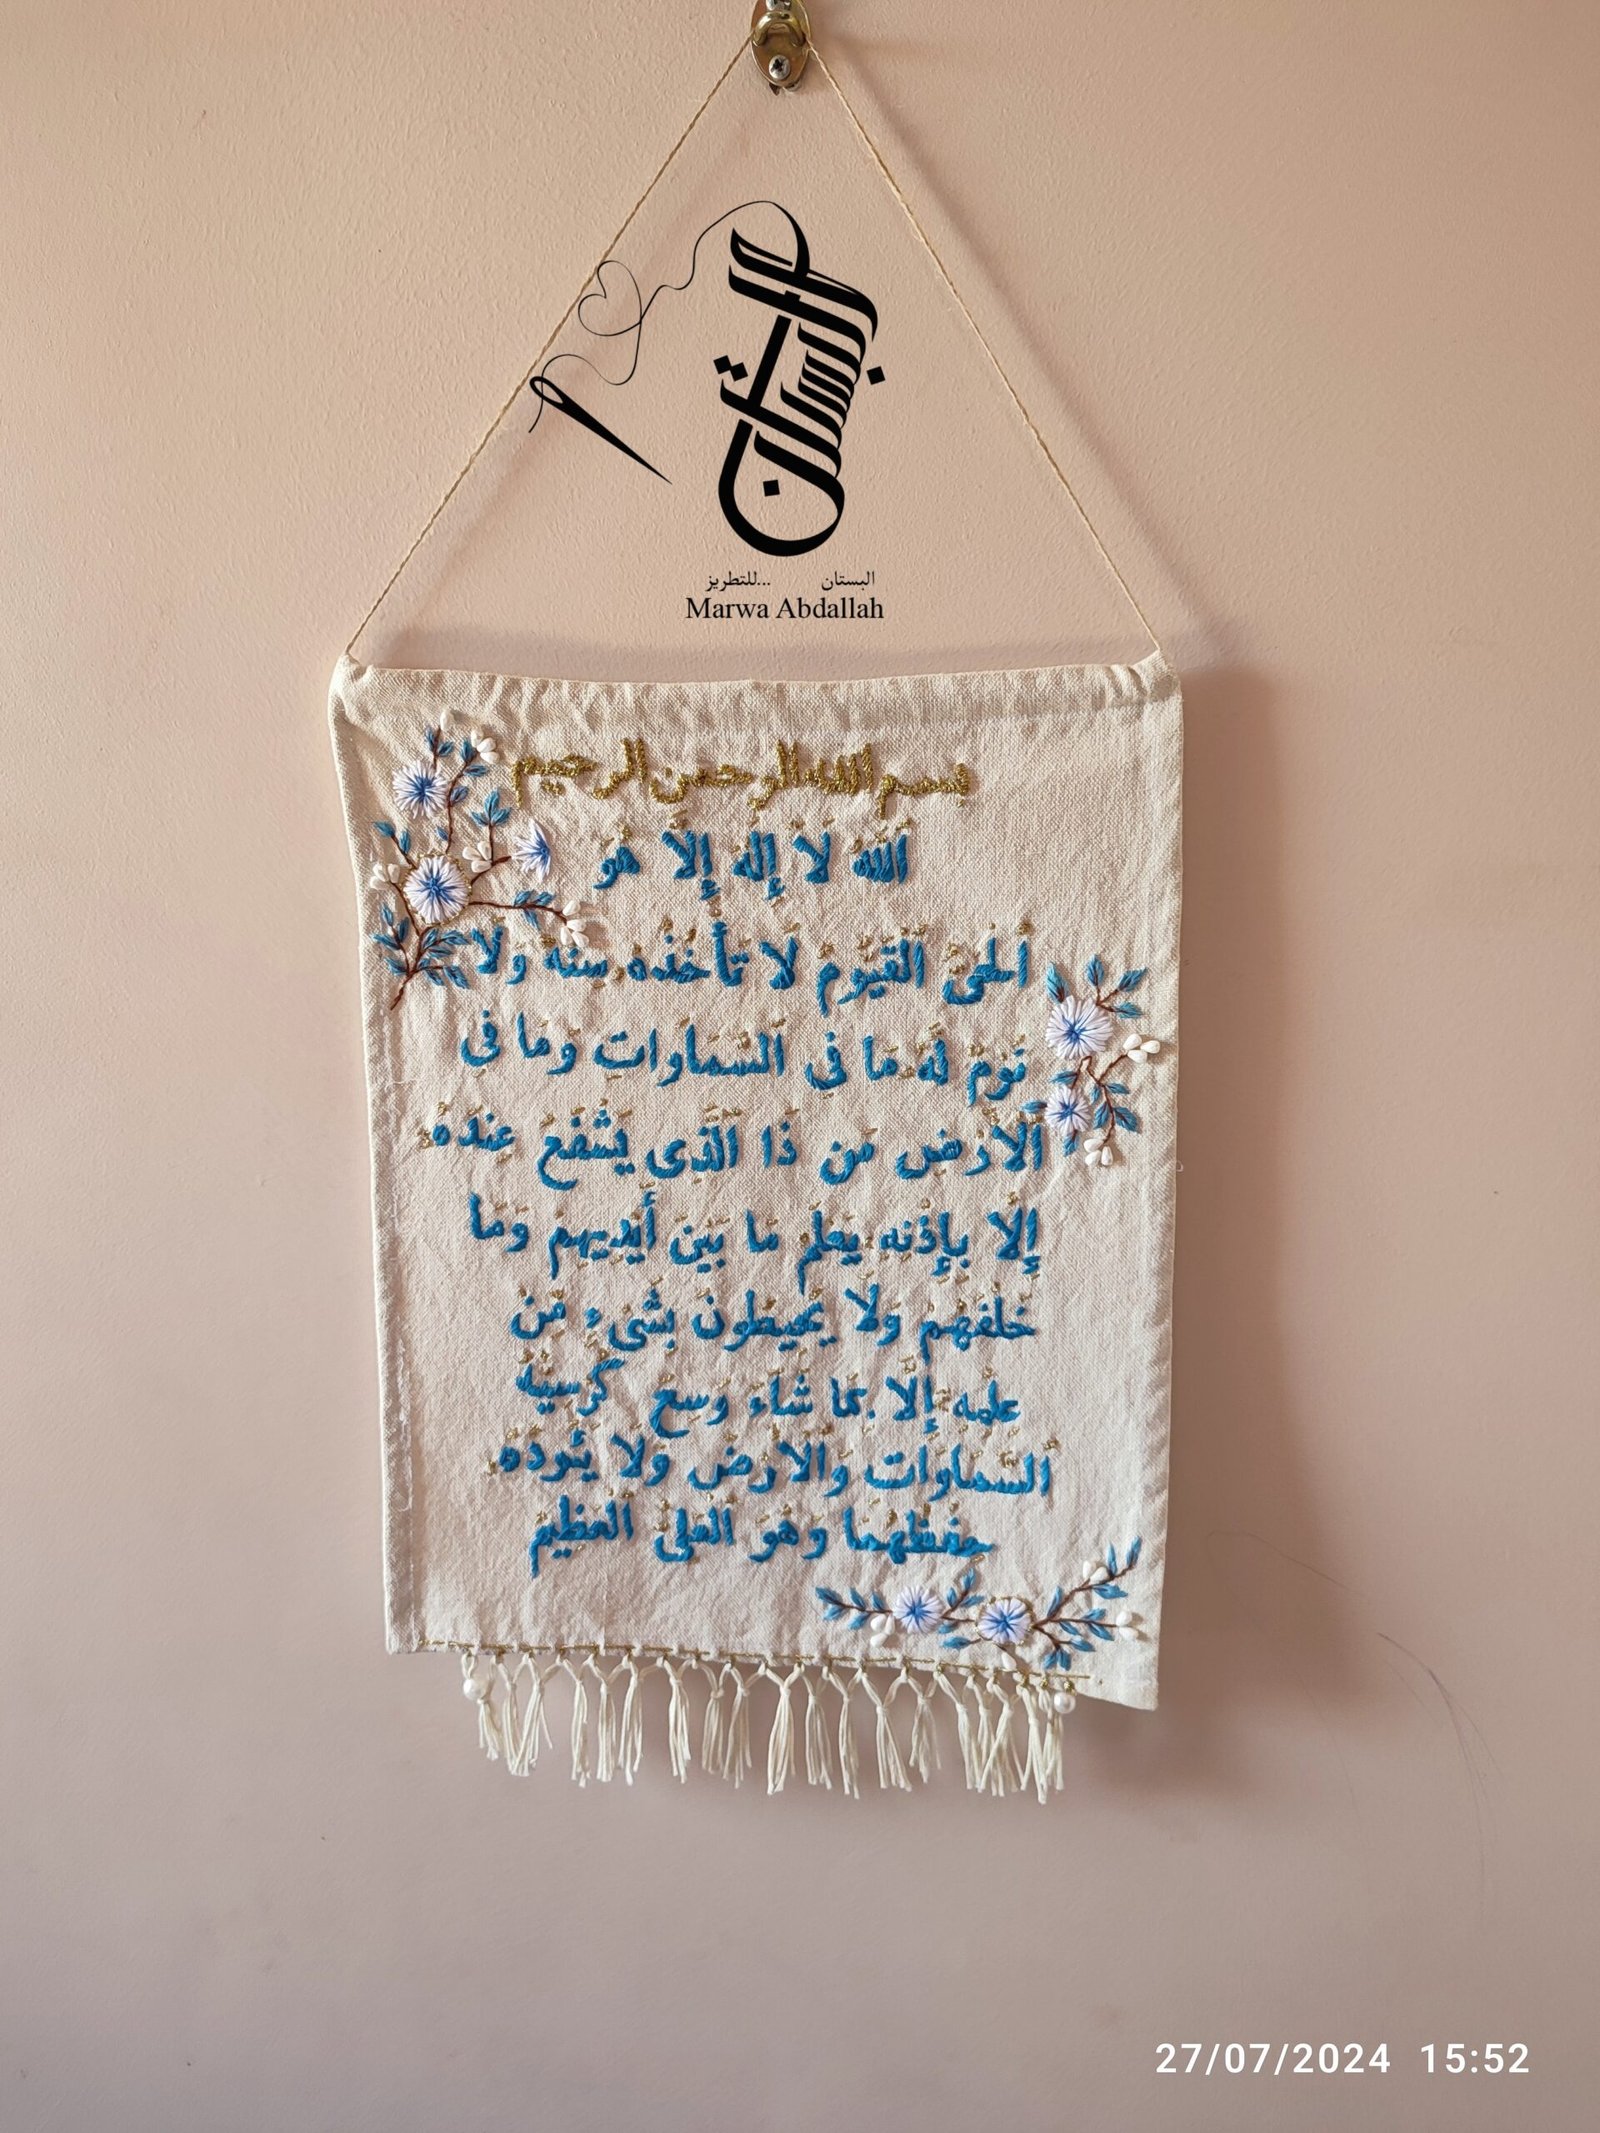 البستان
البستان ...للتطريز
Marwa Abdallah
بسم الله الرحمن الرحيم
اللَّهُ لَا إِلَهَ إِلَّا هُوَ
الْحَيُّ الْقَيُّومُ لَا تَأْخُذُهُ سِنَةٌ وَلَا
نَوْمٌ لَهُ مَا فِي السَّمَاوَاتِ وَمَا فِي
الْأَرْضِ مَن ذَا الَّذِي يَشْفَعُ عِندَهُ
إِلَّا بِإِذْنِهِ يَعْلَمُ مَا بَيْنَ أَيْدِيهِمْ وَمَا
خَلْفَهُمْ وَلَا يُحِيطُونَ بِشَيْءٍ مِّنْ
عِلْمِهِ إِلَّا بِمَا شَاءَ وَسِعَ كُرْسِيُّهُ
السَّمَاوَاتِ وَالْأَرْضَ وَلَا يَئُودُهُ
حِفْظُهُمَا وَهُوَ الْعَلِيُّ الْعَظِيمُ
27/07/2024 15:52